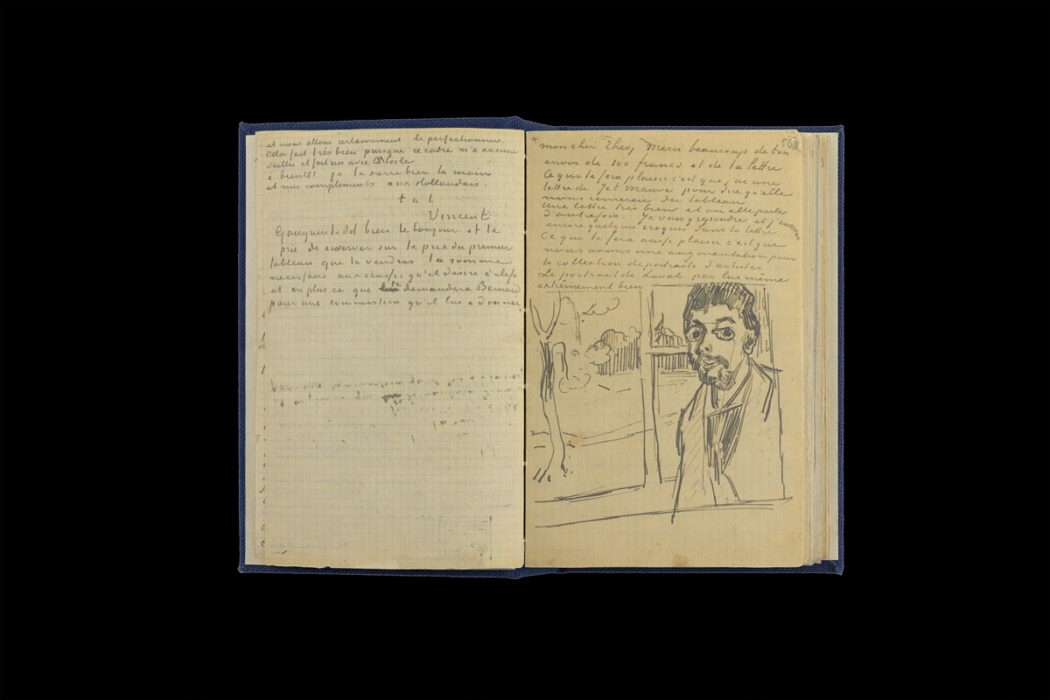 et nous allons certainement le perfectionner.
Cela fait très bien puisque ce cadre n'a aucune
saillie et fait un avec la toile
à bientôt je te serre bien la main
et mes compliments aux Hollandais.
t à t
Vincent
Gauguin te dit bien le bonjour et te
prie de reserver sur le prix du premier
tableau que tu vendras la somme
necessaire aux chassis qu'il desire à clefs
et en plus ce que te demandera Bernard
pour une commission qu'il lui a donnée
mon cher Theo, Merci beaucoup de ton
envoi de 100 francs et de ta lettre.
Ce qui te fera plaisir c'est que j'ai une
lettre de Jet Mauve pour dire qu'elle
nous remercie du tableau
une lettre très bien et où elle parle
d'autrefois. Je vais y repondre et j'enverrai
encore quelques croquis dans la lettre
Ce qui te fera aussi plaisir c'est que
nous avons une augmentation pour
la collection de portraits d'artistes
Le portrait de Laval par lui même
extrêmement bien